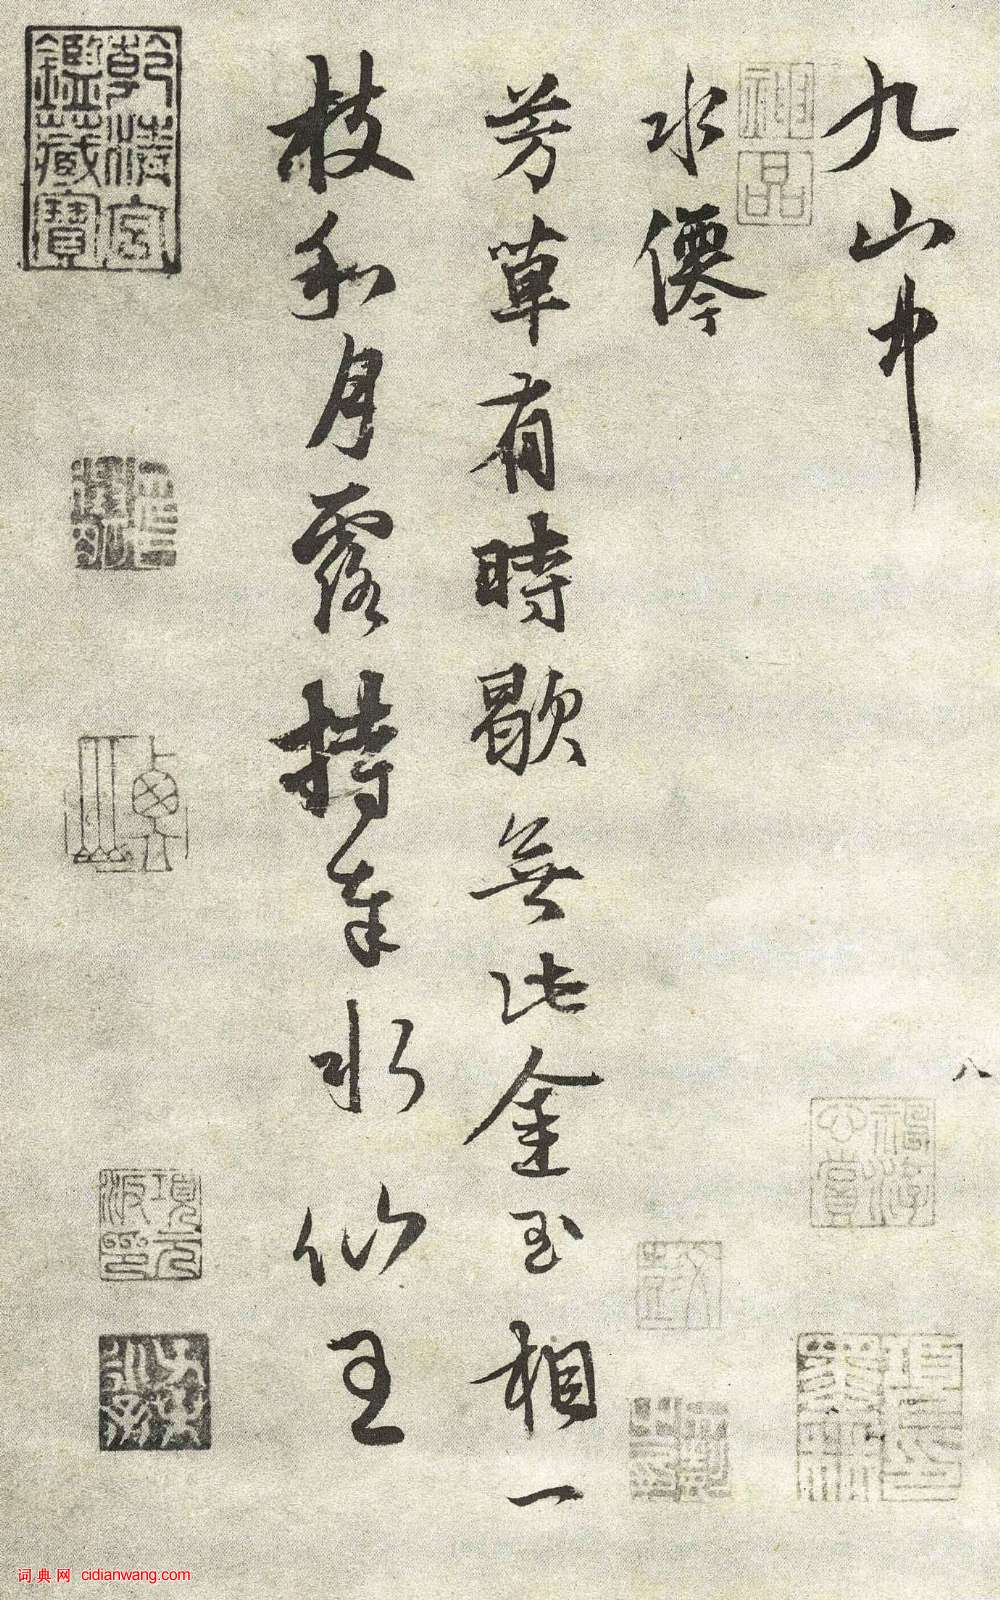 九山中
神品
水僊
芳草有時歇無此金玉相一
枝和月露持奉水仙王
乾清宮鑑藏寶
項元汴印
八
词典网 cidianwang.com